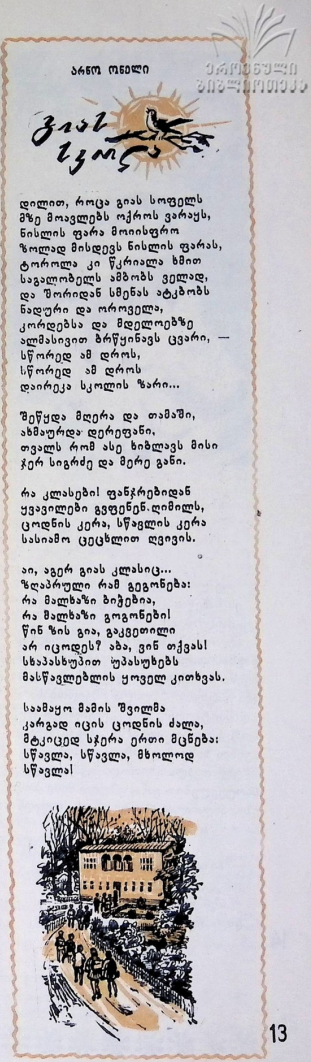 ეროვნული
ბიბლიოთეკა
არნო ონელი
გიას
სკოლა
დილით, როცა გიას სოფელს
მზე მოავლებს ოქროს ვარაყს,
ნისლის ფარა მოიისფრო
ზოლად მისდევს ნისლის ფარას,
ტოროლა კი წკრიალა ხმით
საგალობელს ამბობს ველად,
და შორიდან სმენას ატკბობს
ნადური და ოროველა,
კორდებსა და მდელოებზე
ალმასივით ბრწყინავს ცვარი, —
სწორედ ამ დროს,
სწორედ ამ დროს
დაირეკა სკოლის ზარი...
შეწყდა მღერა და თამაში,
ახმაურდა დერეფანი.
თვალს რომ ასე ხიბლავს მისი
ჯერ სიგრძე და მერე განი.
რა კლასები! ფანჯრებიდან
ყვავილები გვფენენ ღიმილს,
ცოდნის კერა, სწავლის კერა
სასიამო ცეცხლით ღვივის.
აი, აგერ გიას კლასიც...
ზღაპრული რამ გეგონება:
რა მალხაზი ბიჭებია,
რა მალხაზი გოგონები!
წინ ზის გია, გაკვეთილი
არ იცოდეს? აბა, ვინ თქვას!
სხაპასხუპით უპასუხებს
მასწავლებლის ყოველ კითხვას.
საამაყო მამის შვილმა
კარგად იცის ცოდნის ძალა,
მტკიცედ სჯერა ერთი მცნება:
სწავლა, სწავლა, მხოლოდ
სწავლა!
13